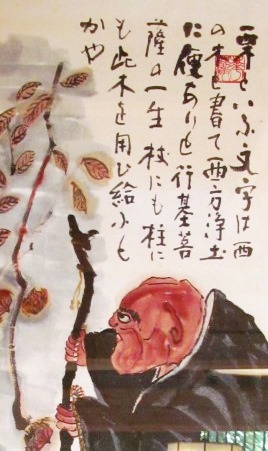 栗といふ文字は西
の木と書て西方浄土
に便ありと行基菩
薩の一生杖にも柱に
も此木を用ひ給ふと
かや